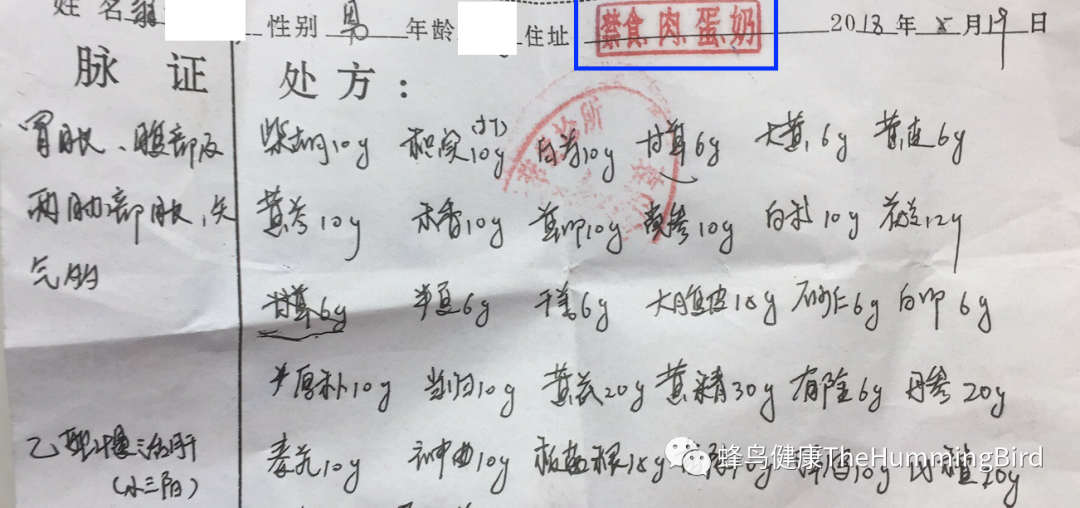 姓名 性别 男 年龄 住址 禁食肉蛋奶 2018年8月19日
脉证 处方：
胃胀、腹部及
两胁部胀，矢
气多
柴胡10g 枳实(打)10g 白芍10g 甘草6g 大黄6g 黄连6g
黄芩10g 木香10g 10g 党参10g 白术10g 茯苓12g
甘草6g 半夏6g 干姜6g 大腹皮18g 砂仁6g 白叩6g
厚朴10g 当归10g 黄芪20g 黄精30g 6g 丹参20g
10g 神曲10g 板蓝根18g 10g 10g 20g
乙
(小三阳)
蜂鸟健康TheHummingBird